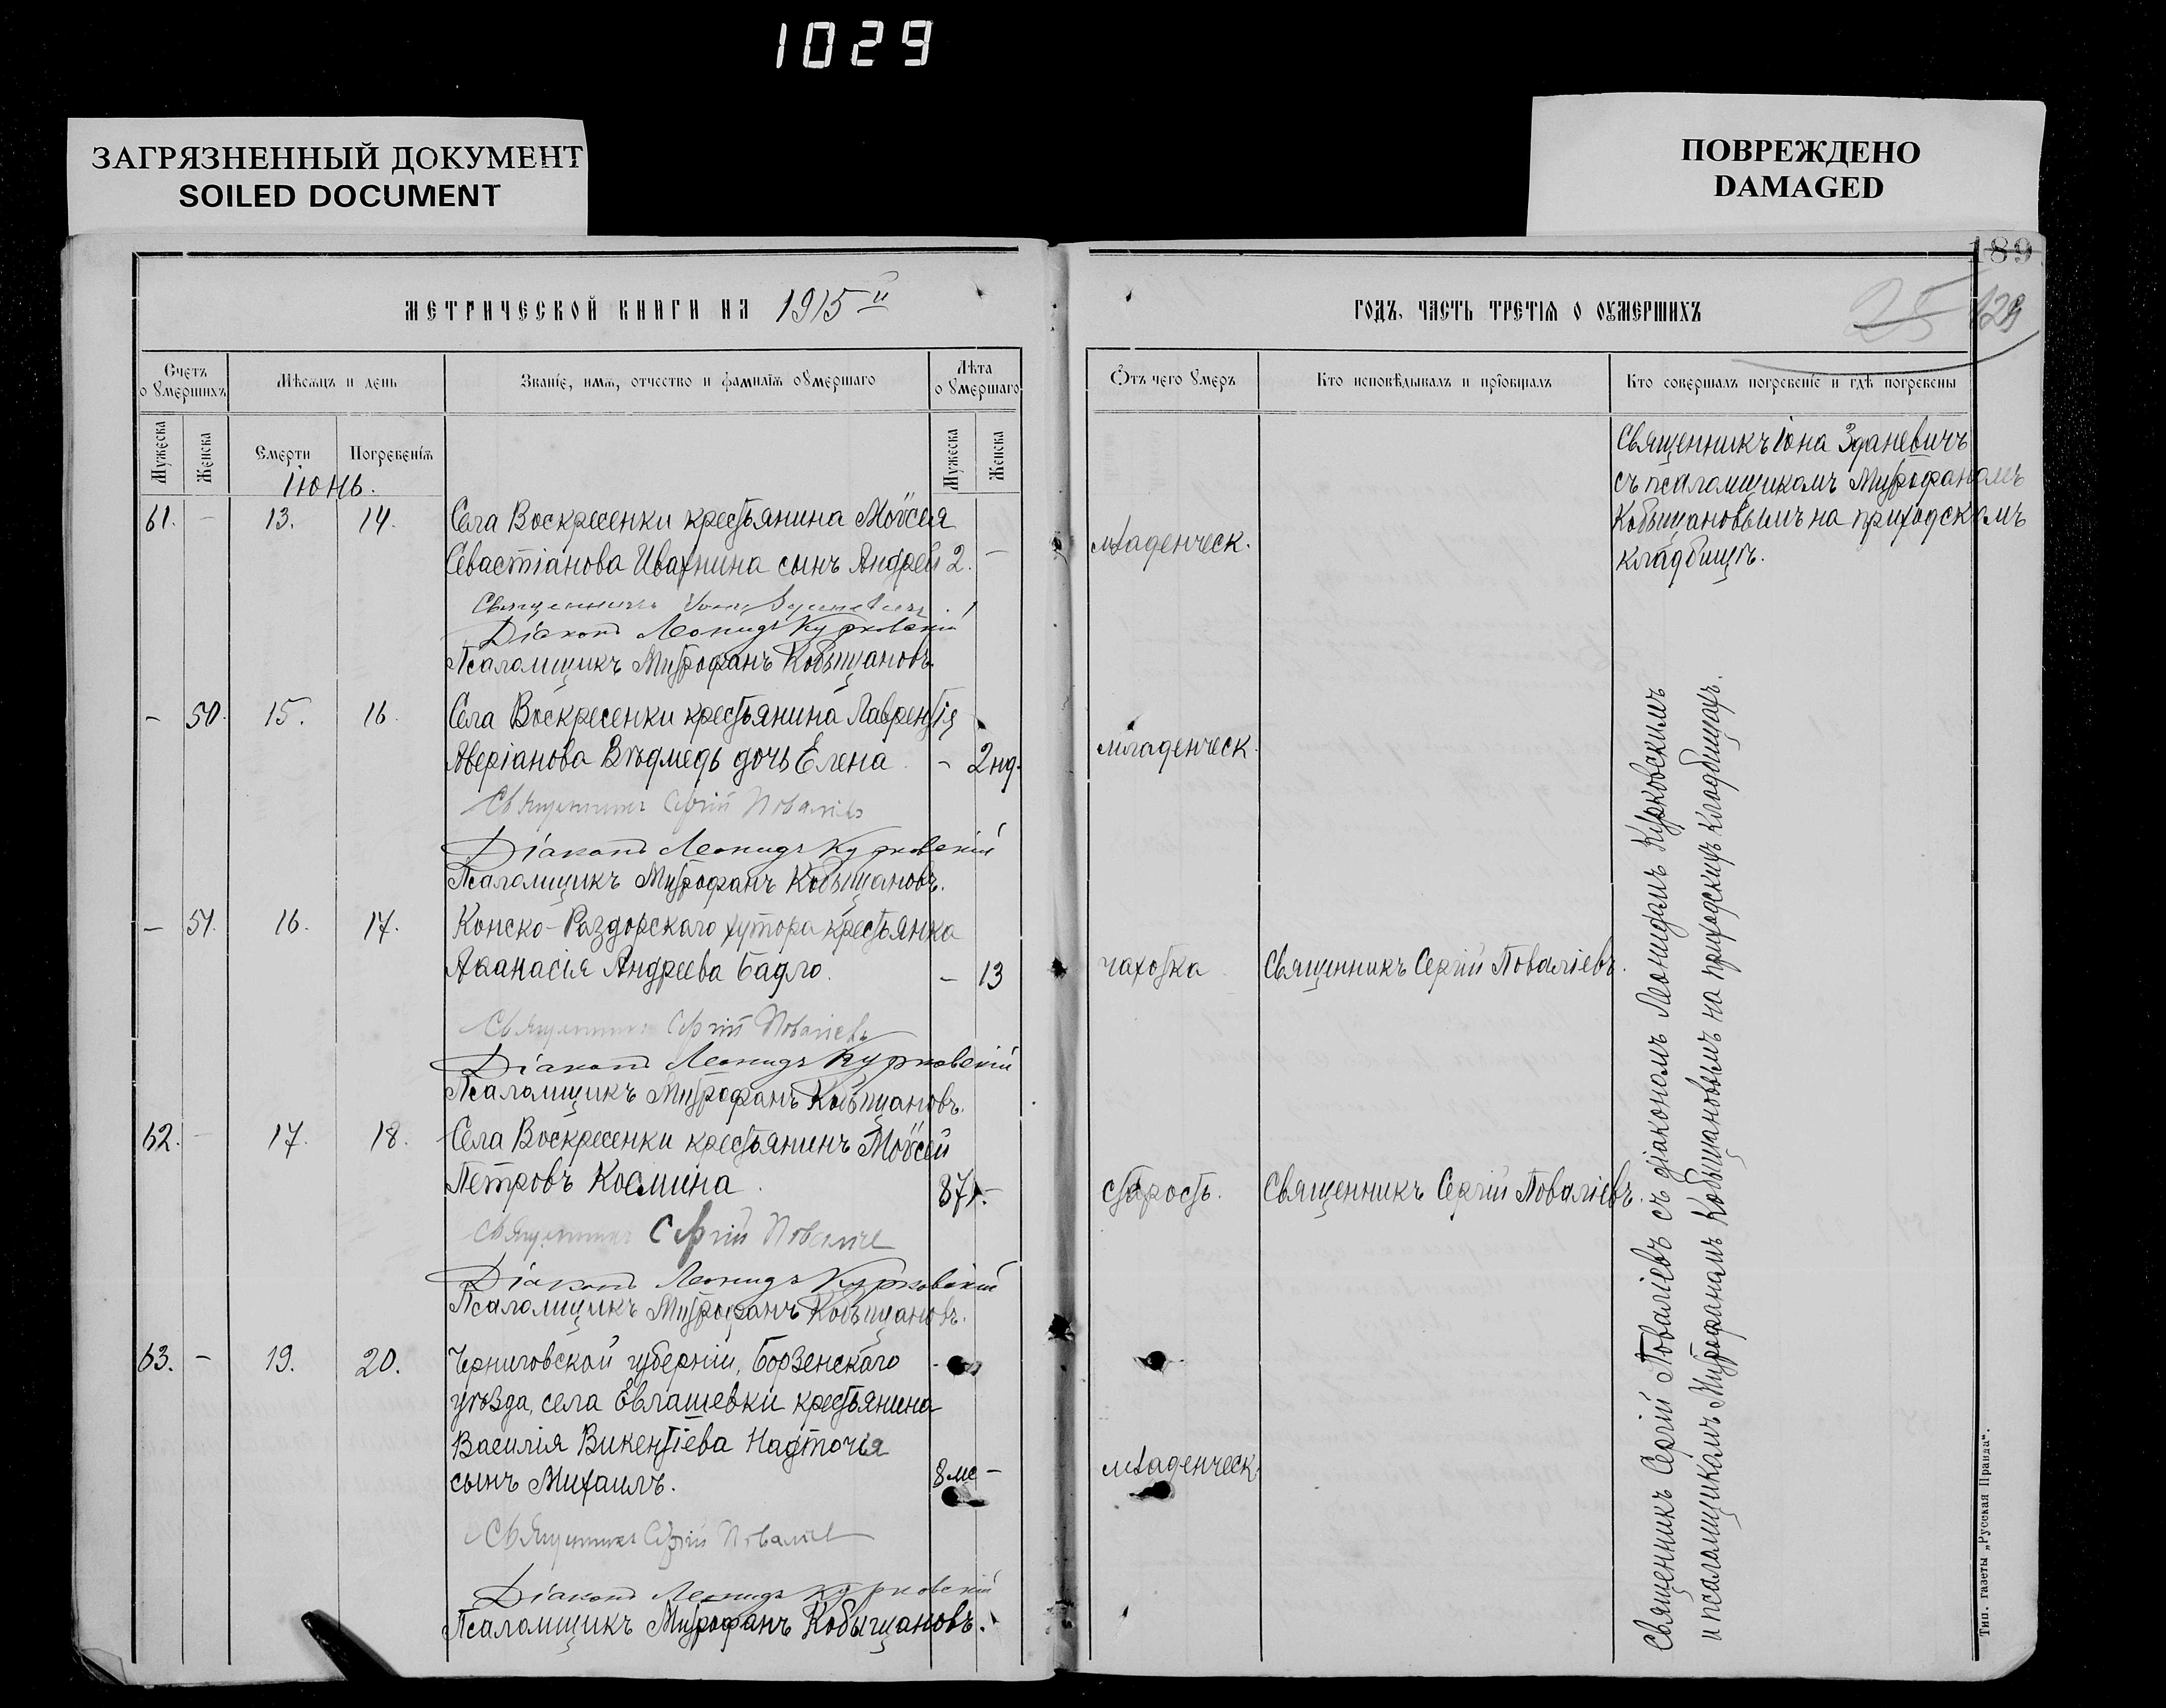 1029
ЗАГРЯЗНЕННЫЙ ДОКУМЕНТ
SOILED DOCUMENT
ПОВРЕЖДЕНО
DAMAGED
МЕТРИЧЕСКОЙ КНИГИ НА 1915й
Счетъ оумершихъ
Мѣсяцъ и день
Званіе, имя, отчество и фамилія оумершаго
Лѣта оумершаго
Мужеска
Женска
Смерти
Погребенія
Мужеска
Женска
Іюнь.
61. - 13. 14. Села Воскресенки крестьянина Моѵсея
Севастіанова Ивахнина сынъ Андрей 2. -
Священникъ Іона Зданевичъ
Діаконъ Леонидъ Курковскій
Псаломщикъ Митрофанъ Кобыщановъ.
- 50. 15. 16. Села Воскресенки крестьянина Лаврентія
Аверіанова Вѣдмедь дочь Елена - 2 нд.
Священникъ Сергій Поваліевъ
Діаконъ Леонидъ Курковскій
Псаломщикъ Митрофанъ Кобыщановъ.
- 51. 16. 17. Конско-Раздорскаго хутора крестьянка
Аѳанасія Андреева Бадло. - 13
Священникъ Сергій Поваліевъ
Діаконъ Леонидъ Курковскій
Псаломщикъ Митрофанъ Кобыщановъ.
62. - 17. 18. Села Воскресенки крестьянинъ Моѵсей
Петровъ Космина. 87 -
Священникъ Сергій Поваліев
Діаконъ Леонидъ Курковскій
Псаломщикъ Митрофанъ Кобыщановъ.
63. - 19. 20. Черниговской губерніи, Борзенскаго
уѣзда, села Евлашевки крестьянина
Василія Викентіева Надточія
сынъ Михаилъ. 8 ме -
Священникъ Сергій Поваліев
Діаконъ Леонидъ Курковскій
Псаломщикъ Митрофанъ Кобыщановъ.
189
25 129
ГОДЪ, ЧАСТЬ ТРЕТІЯ О ОУМЕРШИХЪ
Отъ чего умеръ
Кто исповѣдывалъ и пріобщалъ
Кто совершалъ погребеніе и гдѣ погребены
Священникъ Іона Зданевичъ
съ псаломщикомъ Митрофаномъ
Кобыщановымъ на приходскомъ
кладбищѣ.
младенческ.
младенческ.
чахотка Священникъ Сергій Поваліевъ.
старость. Священникъ Сергій Поваліевъ.
младенческ.
Священникъ Сергій Поваліевъ съ діакономъ Леонидомъ Курковскимъ
и псаломщикомъ Митрофаномъ Кобыщановымъ на приходскихъ кладбищахъ.
Тип. газеты „Русская Правда“.